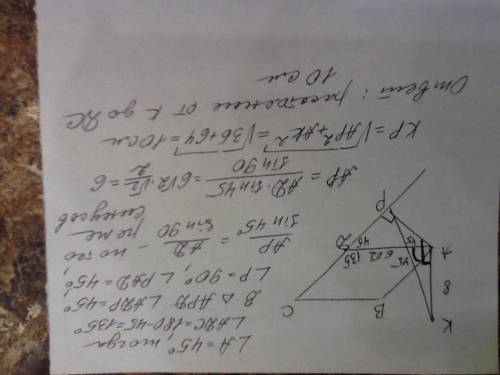 ∠A = 45°, тогда
∠ADC = 180 - 45 = 135°
В △ APD ∠ADP = 45°
∠P = 90°, ∠PAD = 45°,
AP / sin 45° = AD / sin 90 - по тео
реме
синусов
AP = AD · sin 45 / sin 90 = 6√2 · √2/2 = 6
KP = √AP² + AK² = √36 + 64 = 10 см
Ответ: расстояние от K до DC
10 см
K
8
A
B
C
D
P
45
45
45
6√2
135